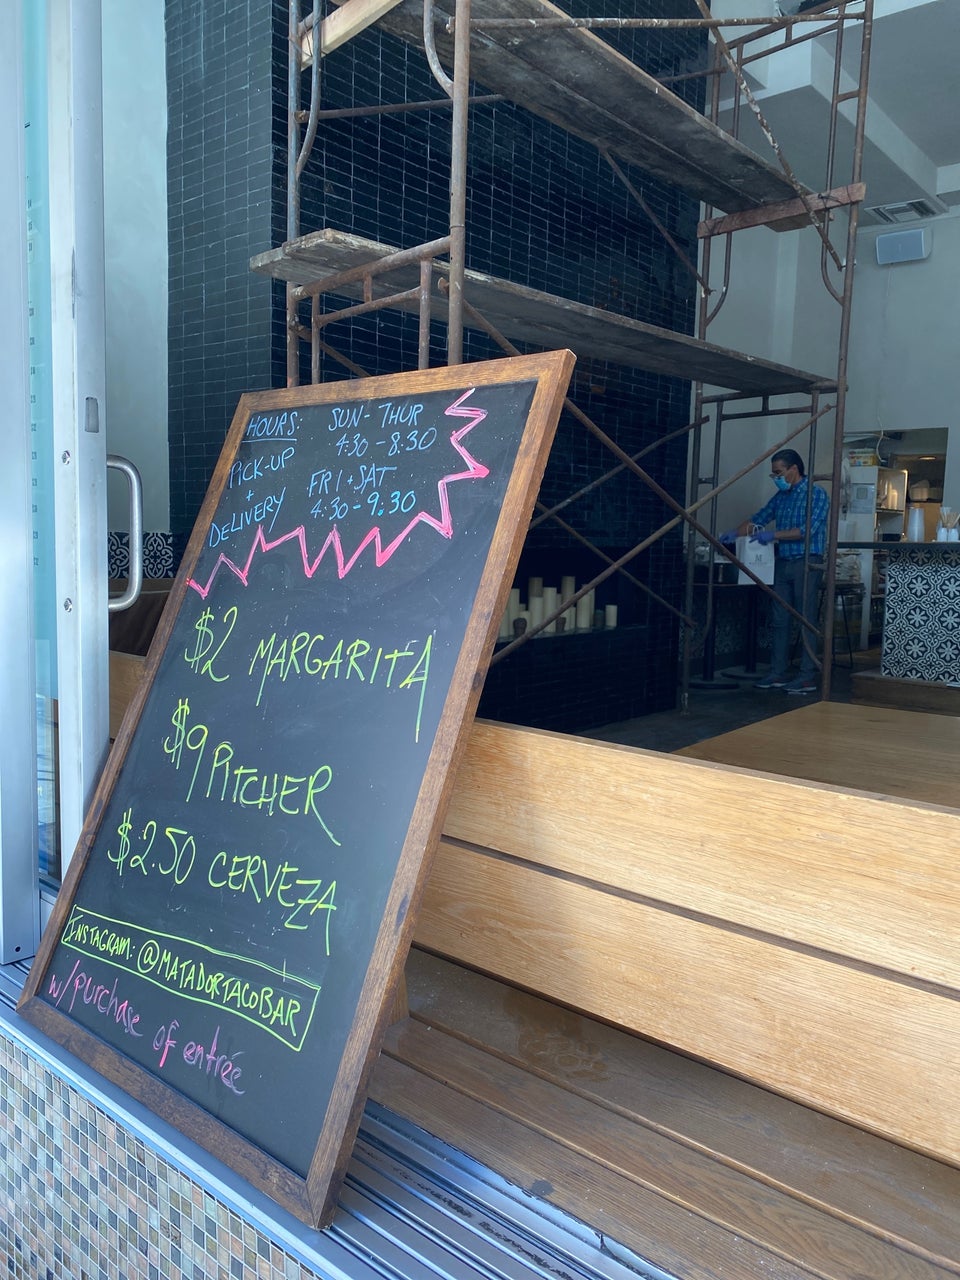 HOURS: SUN- THUR
4:30 - 8:30
PICK-UP
+
DELIVERY
FRI + SAT
4:30 - 9:30
$2 MARGARITA
$9 PITCHER
$2.50 CERVEZA
INSTAGRAM: @MATADORTACOBAR
w/purchase of entrée